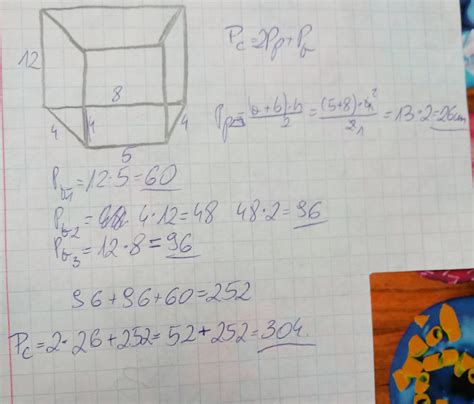 12
8
4
4
4
5
Pc=2Pp+Pb
Pp=(a+b)·h/2=(5+8)·4²/2₁=13·2=26cm
Pb1=12·5=60
Pb2= 4·12=48 48·2=96
Pb3=12·8=96
96+96+60=252
Pc=2·26+252=52+252=304.